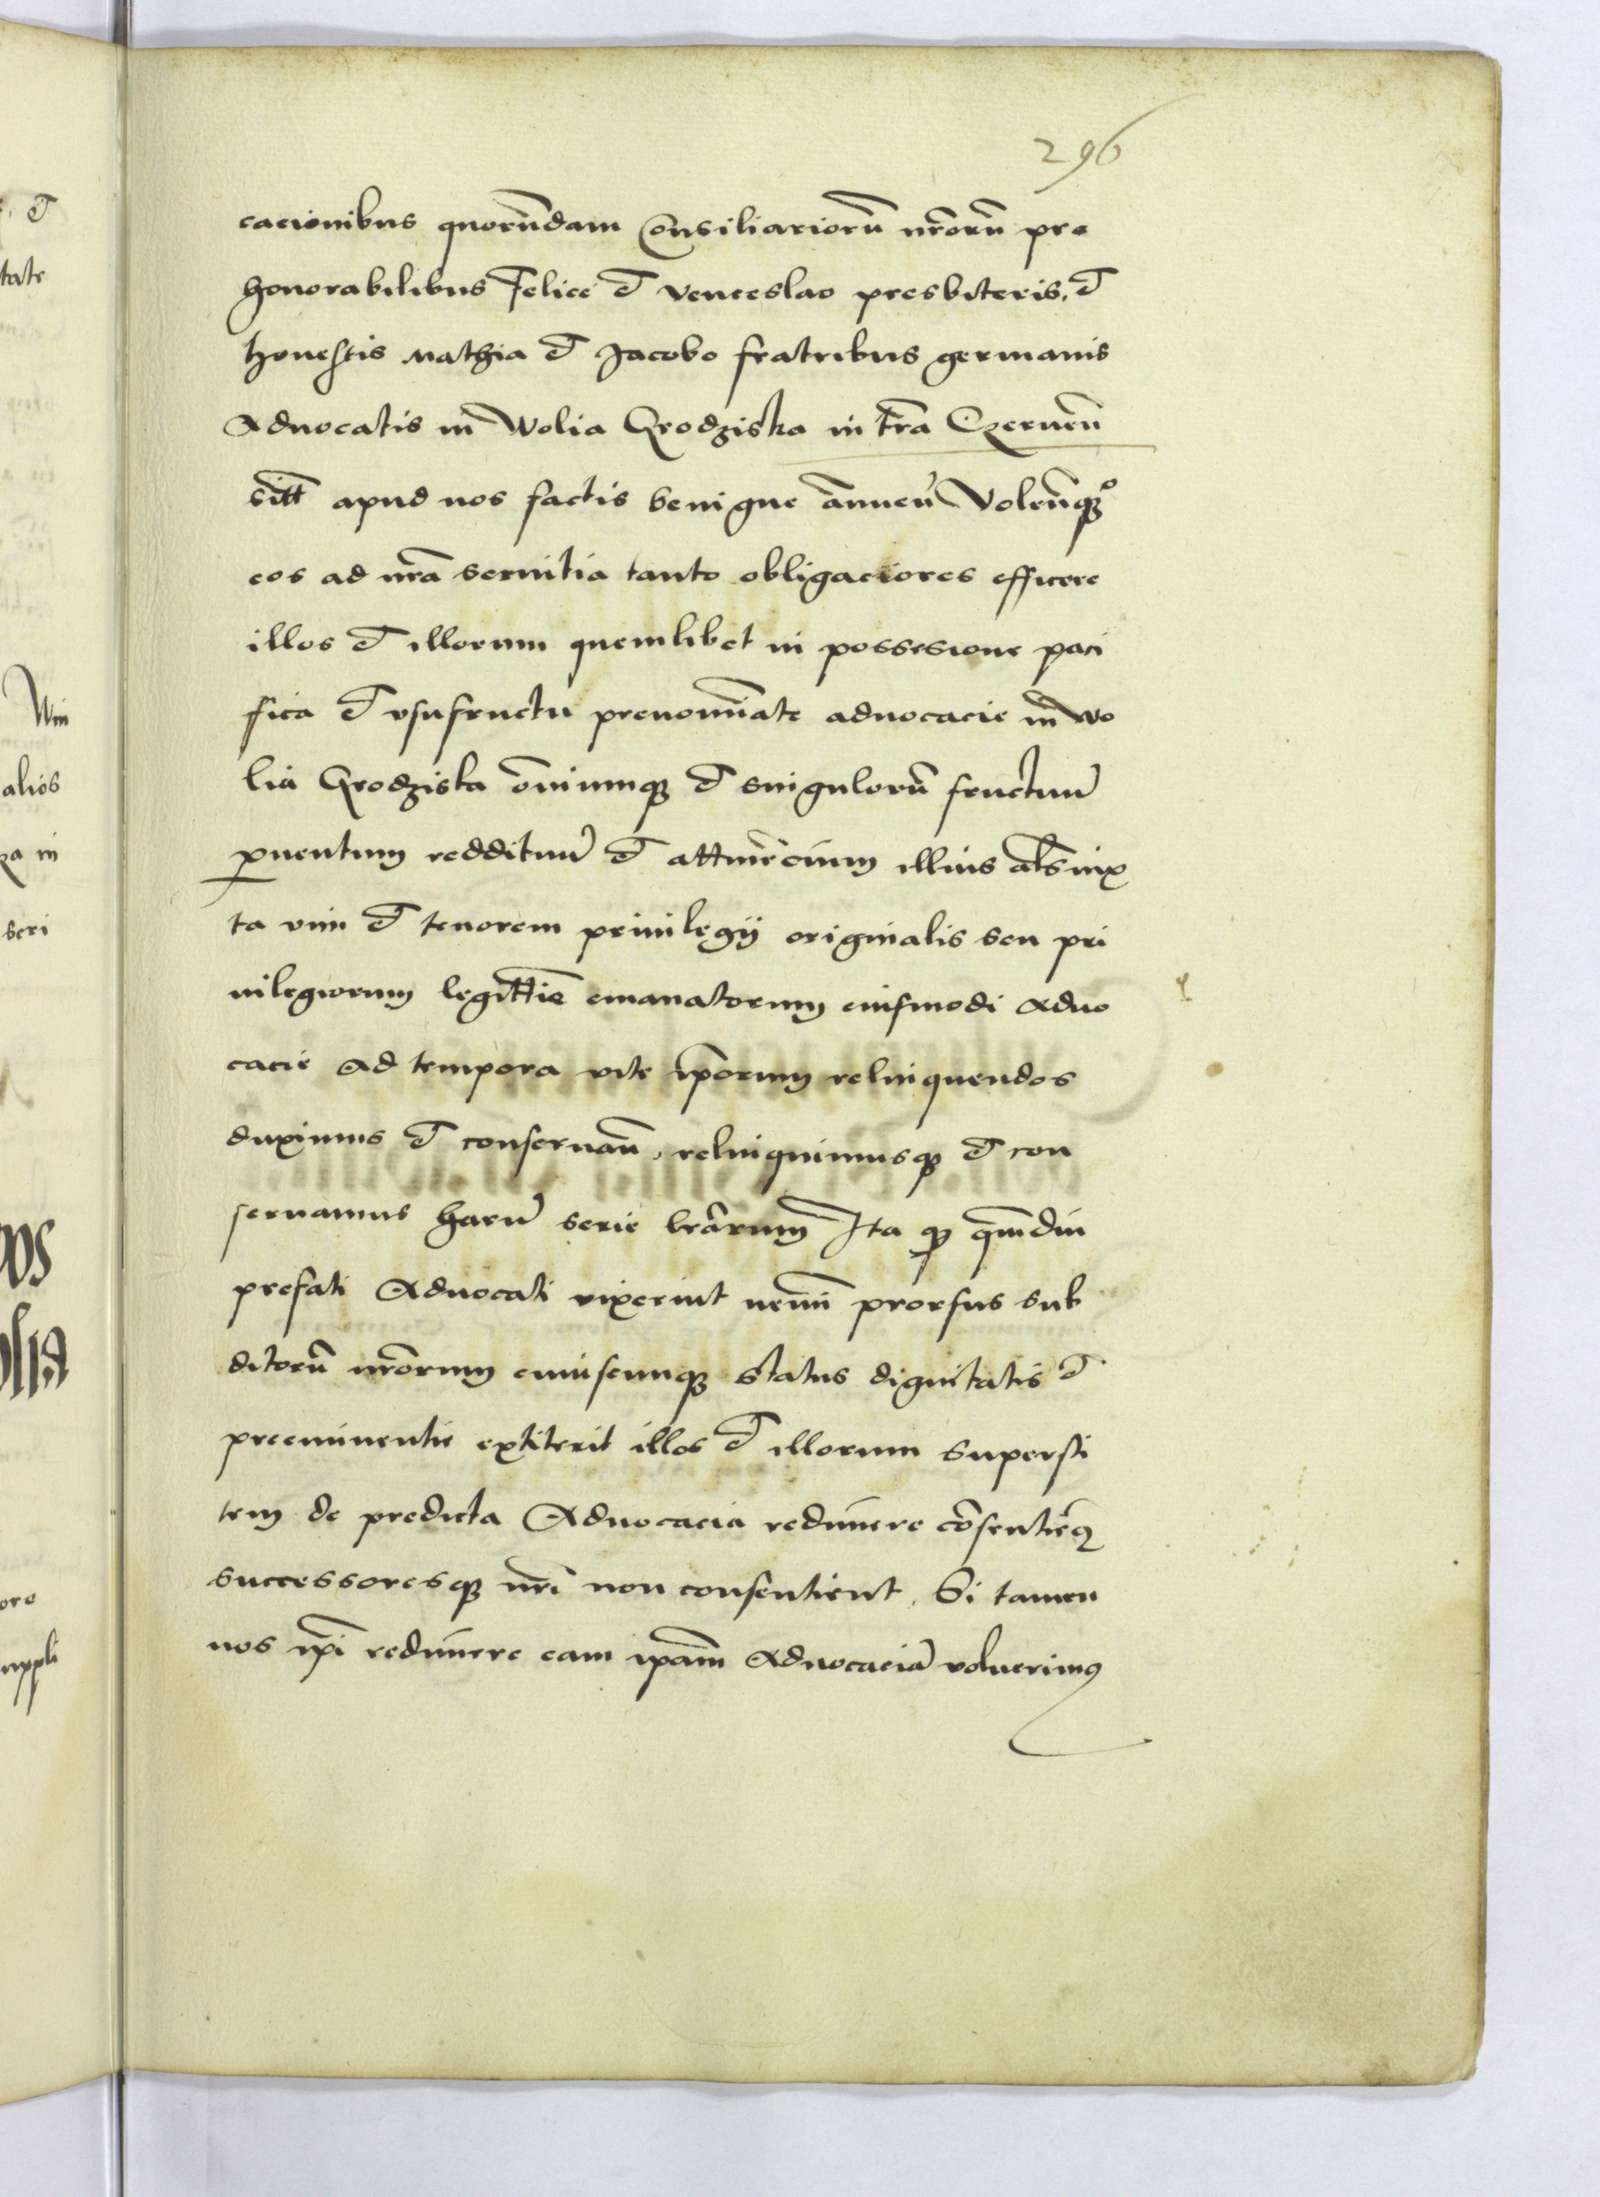 296
cacionibus quorũdam Consiliariorũ nr̃orũ pro
honorabilibus Felice et Venceslao presbiteris, et
honestis Mathia et Jacobo fratribus germanis
Aduocatis in Wolia Grodziska in tr̃a Czernen̄
sitt̃ apud nos factis benigne ãnueñ Volenq̃ꝫ
eos ad nr̃a seruitia tanto obligaciores efficere
illos et illorum quemlibet in possesione paci
fica et vsufructu prenomĩate aduocacie in Wo
lia Grodziska õniumqꝫ et singulorũ fructuũ
ꝓuentum reddituũ et attinẽcium illius al̃s iux
ta vim et tenorem priuilegij originalis seu pri
uilegiorum legitt̃ie emanatorum eiusmodi Aduo
cacie Ad tempora vite ip̃orum relinquendos
duximus et conseruañ, relinquimusqꝫ et con
seruamus harũ serie lr̃arum Ita qꝫ q̃mdiu
prefati Aduocati vixerint nemĩ prorsus sub
ditorũ nr̃orum cuiuscumqꝫ status dignitatis et
preeminentie extiterit illos et illorum supersti
tem de predicta Aduocacia redimere cõsentiẽꝫ
successoresqꝫ nr̃i non consentient, Si tamen
nos ip̃i redimere eam ip̃am Aduocaciã voluerimꝰ
et
tate
Win
alios
za in
seri
ore
uppli